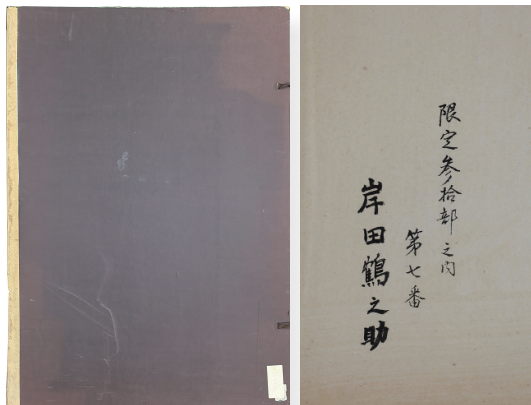 限定参拾部之内
第七番
岸田鶴之助